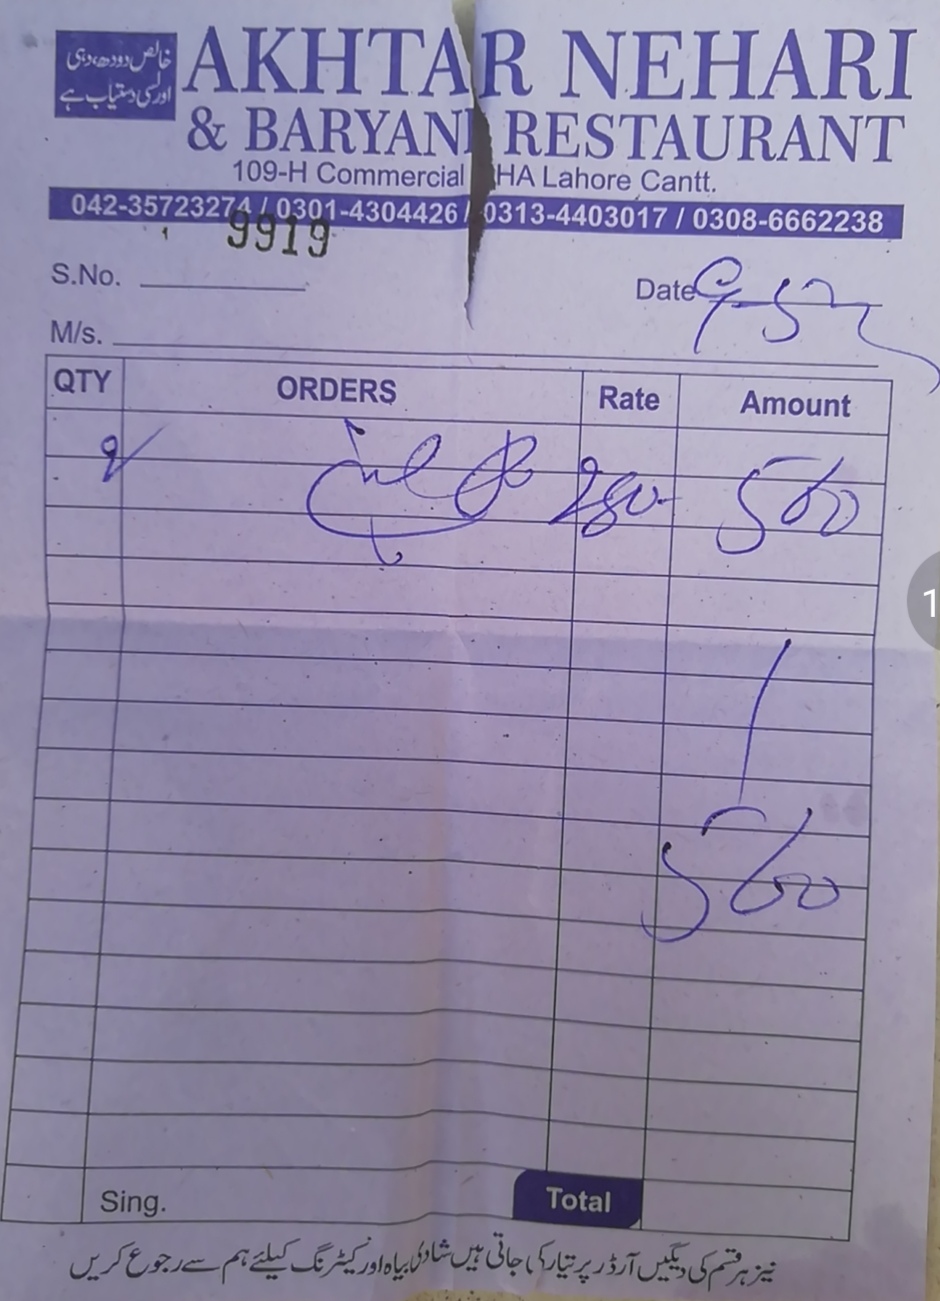 خالص دودھ، دہی
اور لسی دستیاب ہے
AKHTAR NEHARI
& BARYANI RESTAURANT
109-H Commercial HA Lahore Cantt.
042-35723274 / 0301-4304426 / 0313-4403017 / 0308-6662238
9919
S.No. Date
M/s.
QTY ORDERS Rate Amount
2 280 560
560
Sing. Total
نیز ہر قسم کی دیگیں آرڈر پر تیار کی جاتی ہیں شادی بیاہ اور کیٹرنگ کیلئے ہم سے رجوع کریں
1